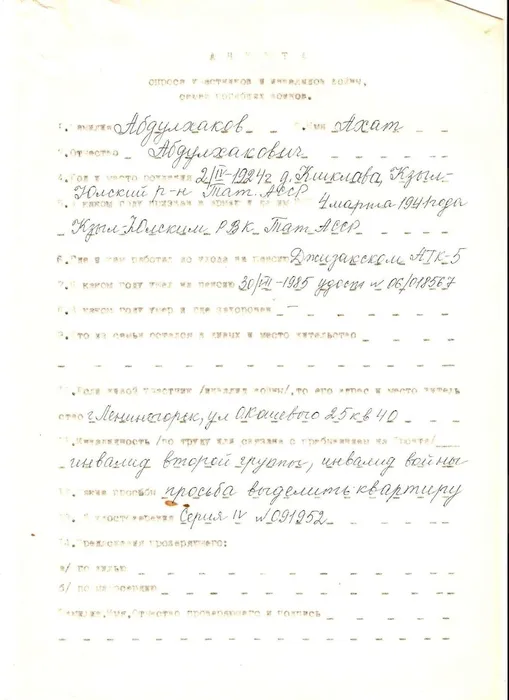 А Н К Е Т А
опроса участников и инвалидов войны,
семей погибших воинов.
1. Фамилия Абдулхаков 2. Имя Ахат
3. Отчество Абдулхакович
4. Год и место рождения 2/IV-1924г д. Кшклава, Кзыл-
Юлский р-н Тат. АССР
5. В каком году призван в армию и 4 марта 1941 года
Кзыл-Юлским РВК Тат АССР
6. Где и кем работал до ухода на пенсию Джизакском АТК-5
7. В каком году ушел на пенсию 30/VII-1985 удост N 06/018567
8. В каком году умер и где захоронен —
9. Кто из семьи остался в живых и место жительство
10. Если живой участник /инвалид войны/, то его адрес и место житель
ство г. Лениногорск, ул О.Кошевого 25 кв 40
11. Инвалидность /по труду или связана с пребыванием на фронте/
инвалид второй группы, инвалид войны
12. Какие просьбы просьба выделить квартиру
13. удостоверения Серия IV N 091952
14. Предложения проверяющего:
а/ по жилью
б/ по
Фамилия, Имя, Отчество проверяющего и подпись